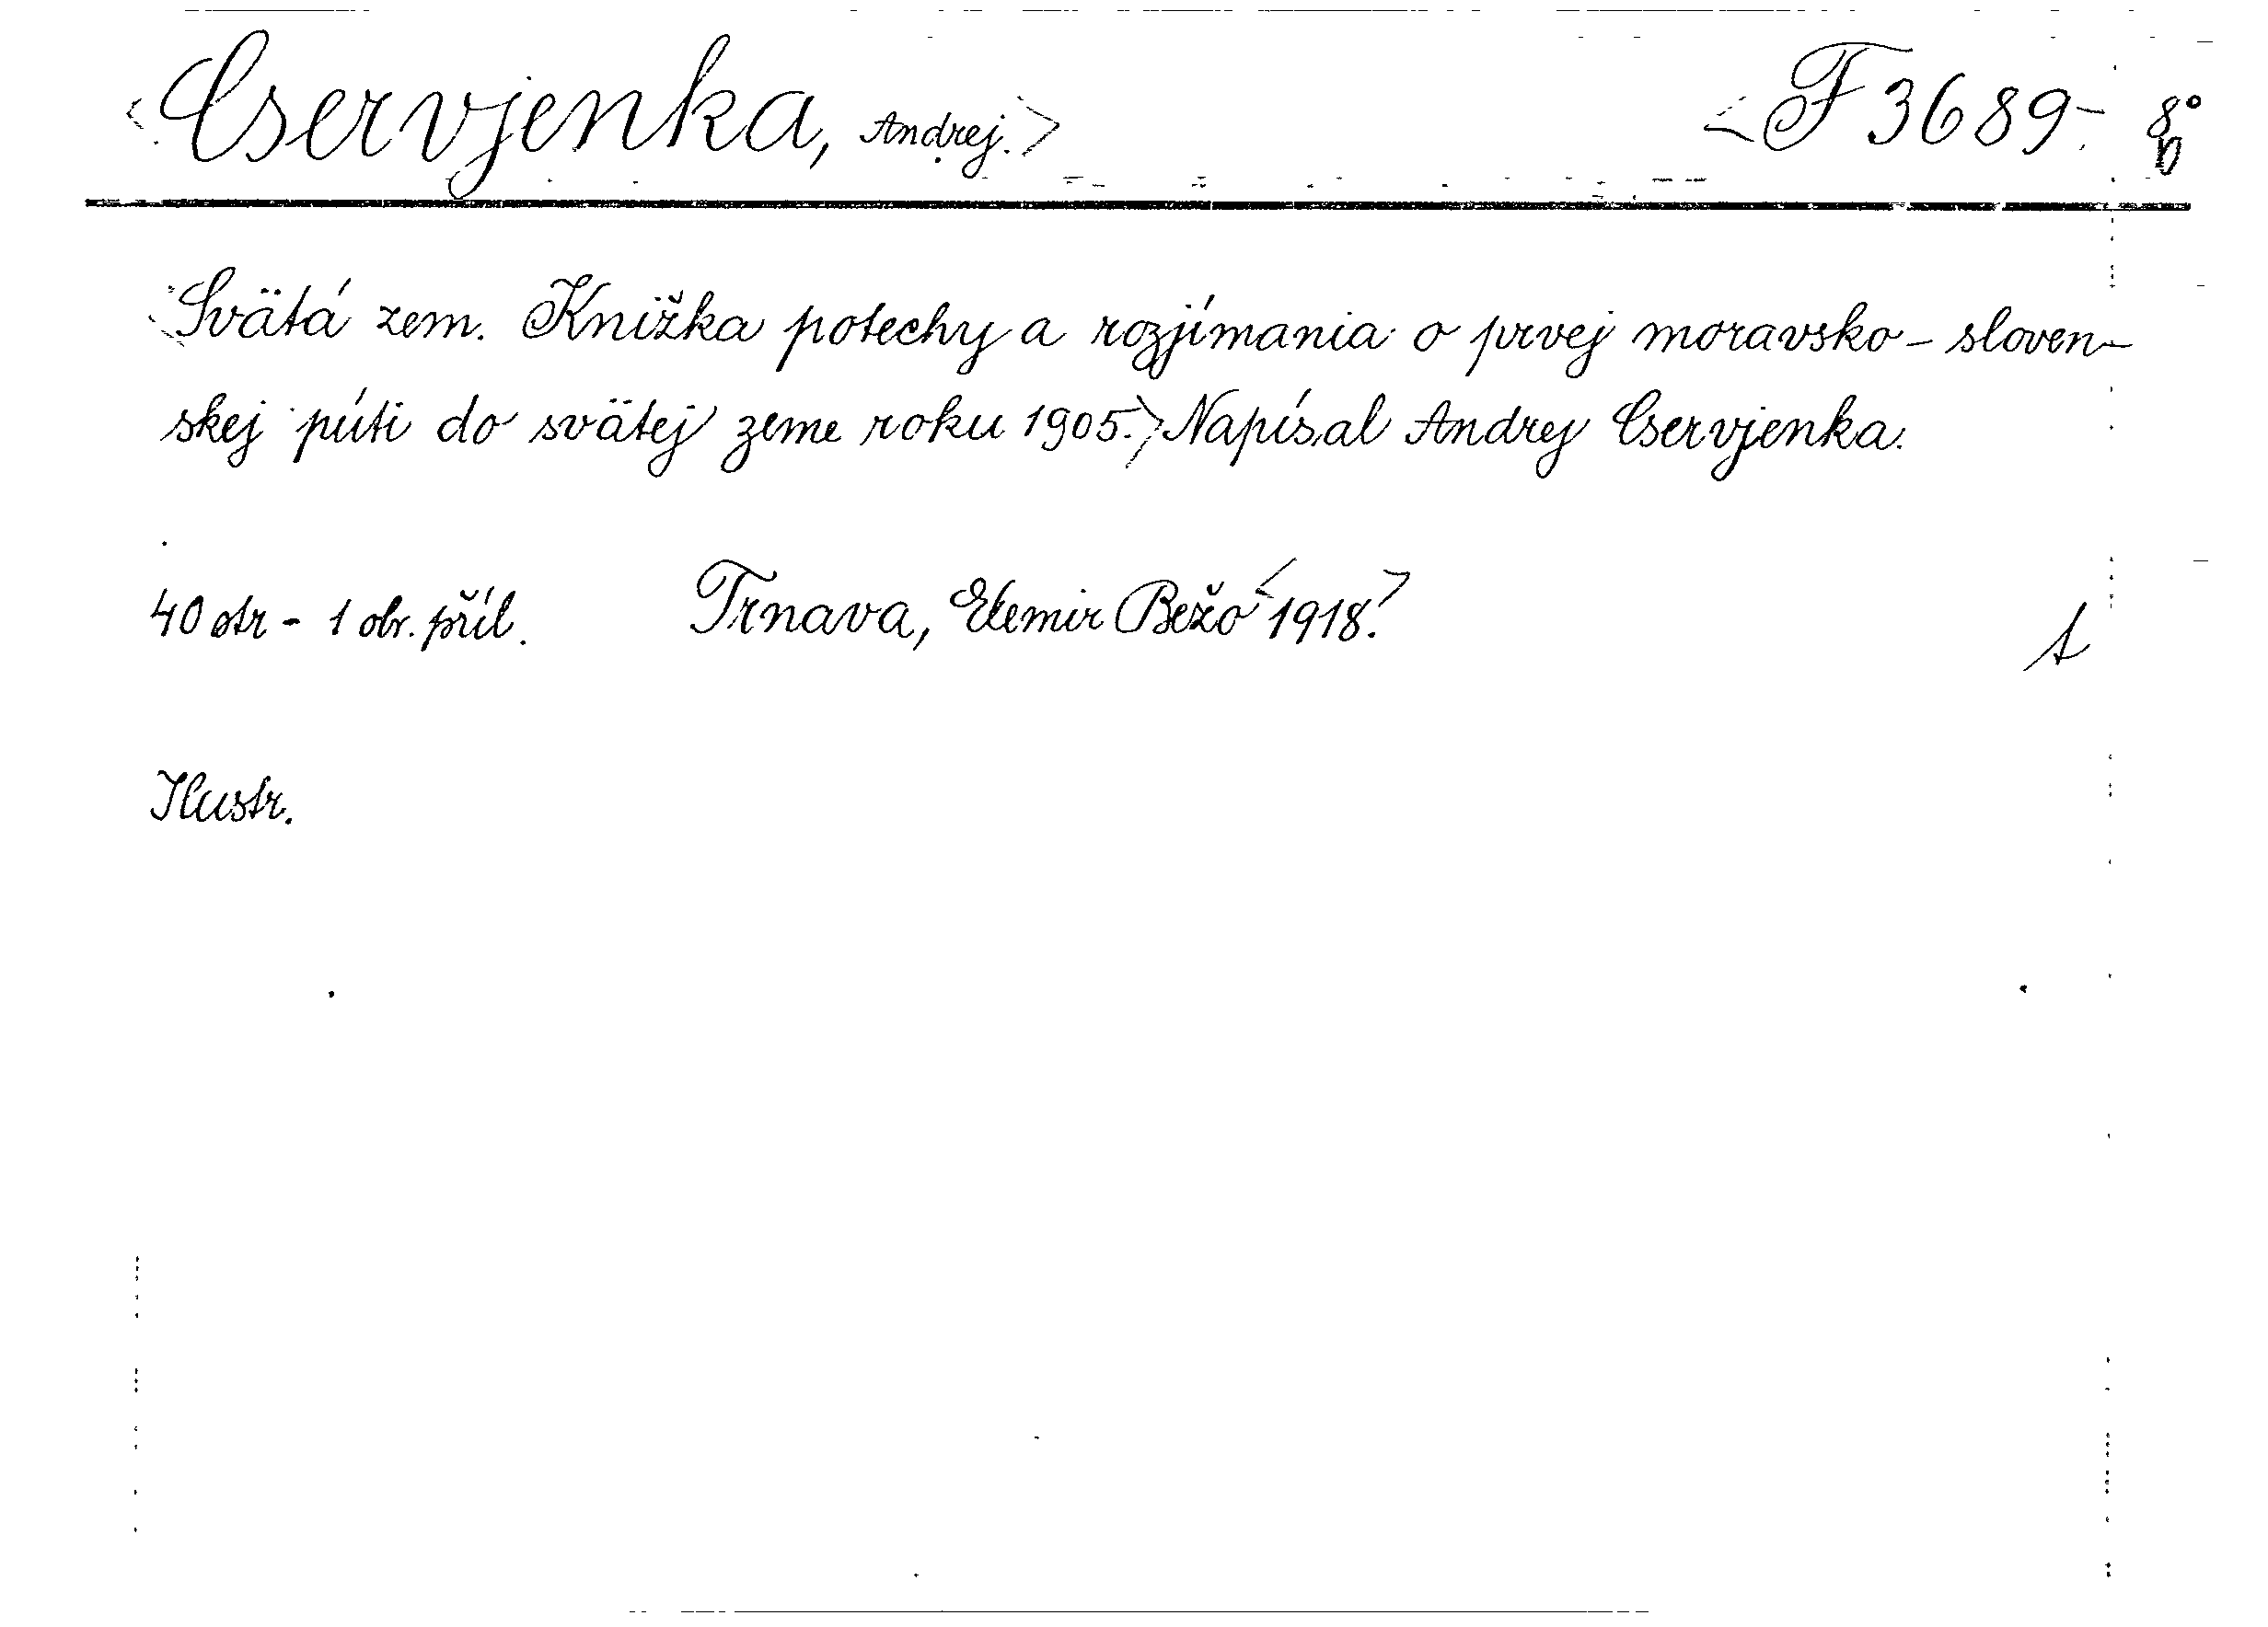 <Cservjenka, Andrej.> <F 3689.- 8°
<Svätá zem. Knižka potechy a rozjímania o prvej moravsko-sloven-
skej púti do svätej zeme roku 1905.> Napísal Andrej Cservjenka.
40 str - 1 obr. příl. Trnava, Elemir Bežo <1918.>
Ilustr.